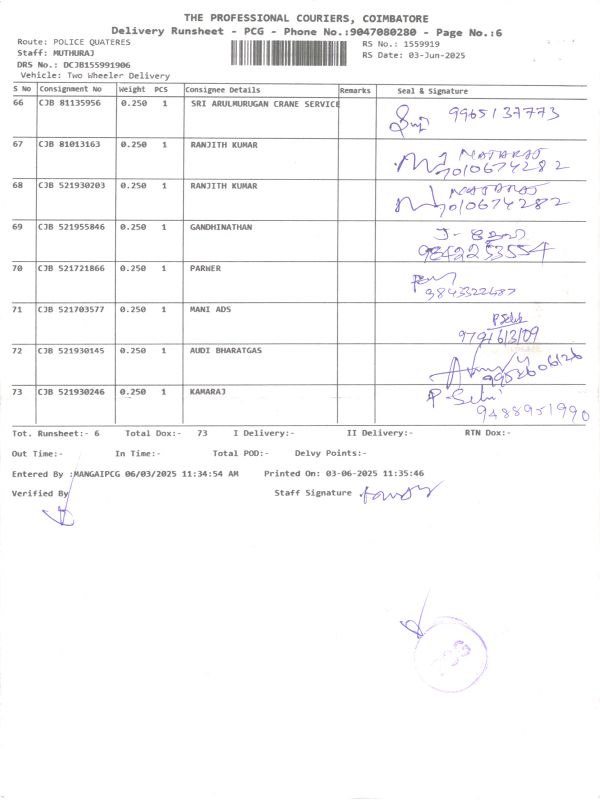 THE PROFESSIONAL COURIERS, COIMBATORE
Delivery Runsheet - PCG - Phone No.:9047080280 - Page No.:6
Route: POLICE QUATERES
RS No.: 1559919
Staff: MUTHURAJ
RS Date: 03-Jun-2025
DRS No.: DCJB155991906
Vehicle: Two Wheeler Delivery
S No Consignment No Weight PCS Consignee Details Remarks Seal & Signature
66 CJB 81135956 0.250 1 SRI ARULMURUGAN CRANE SERVICE 9965137773
67 CJB 81013163 0.250 1 RANJITH KUMAR NATARAJ
7010674282
68 CJB 521930203 0.250 1 RANJITH KUMAR NATARAJ
7010674282
69 CJB 521955846 0.250 1 GANDHINATHAN
9842253554
70 CJB 521721866 0.250 1 PARWER
9843322487
71 CJB 521703577 0.250 1 MANI ADS
72 CJB 521930145 0.250 1 AUDI BHARATGAS
9952606126
73 CJB 521930246 0.250 1 KAMARAJ P-Selvi
9488951990
Tot. Runsheet:- 6 Total Dox:- 73 I Delivery:- II Delivery:- RTN Dox:-
Out Time:- In Time:- Total POD:- Delvy Points:-
Entered By :MANGAIPCG 06/03/2025 11:34:54 AM Printed On: 03-06-2025 11:35:46
Verified By Staff Signature